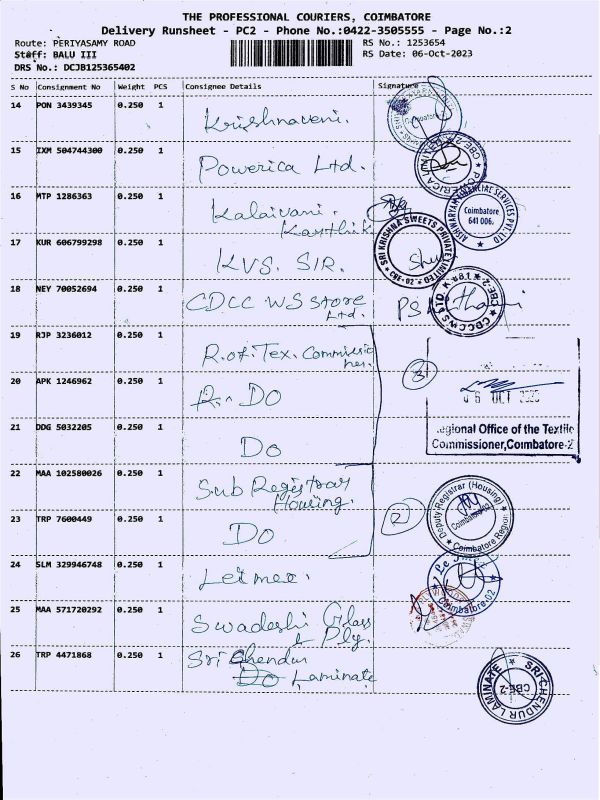 THE PROFESSIONAL COURIERS, COIMBATORE
Delivery Runsheet - PC2 - Phone No.:0422-3505555 - Page No.:2
Route: PERIYASAMY ROAD RS No.: 1253654
Staff: BALU III RS Date: 06-Oct-2023
DRS No.: DCJB125365402
S No Consignment No Weight PCS Consignee Details Signature
14 PON 3439345 0.250 1 Krishnaveni.
Coimbatore
15 IXM 504744300 0.250 1 Powerica Ltd.
POWERICA LIMITED ★ CBE-2 ★
16 MTP 1286363 0.250 1 Kalaivani.
Karthik
AISHWARYAM FINANCIAL SERVICES PVT. LTD
Coimbatore
641 006.
17 KUR 606799298 0.250 1 KVS. SIR.
SRI KRISHNA SWEETS PRIVATE LIMITED
★ CBE-02 ★
18 NEY 70052694 0.250 1 CDCC WS Store
Ltd.
CDCCWS LTD. CBE-2
19 RJP 3236012 0.250 1 R.of.Tex. Commissio
ner.
20 APK 1246962 0.250 1 Do
3
06 OCT
21 DDG 5032205 0.250 1 Do
.egional Office of the Textile
Commissioner,Coimbatore-2
22 MAA 102580026 0.250 1 Sub Registrar
Housing.
Deputy Registrar (Housing)
Coimbatore
★ Coimbatore Region ★
23 TRP 7600449 0.250 1 Do
2
24 SLM 329946748 0.250 1 Leimer.
Coimbatore-02
25 MAA 571720292 0.250 1 Swadeshi Glass
& Ply.
26 TRP 4471868 0.250 1 Sri Chendur
Do Laminate
SRI CHENDUR LAMINATE ★
CBE-2